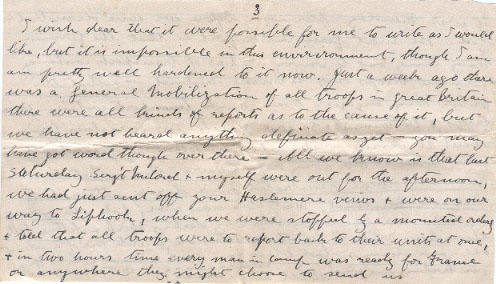 3
I wish dear that it were possible for me to write as I would
like, but it is impossible in this envirironment, though I am
am pretty well hardened to it now. Just a week ago there
was a General Mobilization of all troops in great Britain
there were all kinds of reports as to the cause of it, but
we have not heard anything definate as yet — you may
have got word though over there — All we know is that last
Saturday Sergt & myself were out for the afternoon,
we had just sent off your Haslemere views & were on our
way to Liphook, when we were stopped by a mounted orderly
& told that all troops were to report back to their units at once,
& in two hours time every man in camp was ready for France
or anywhere they might choose to send us